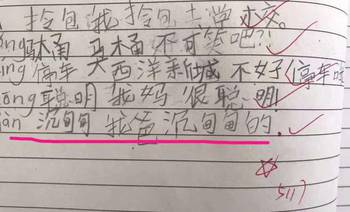 拎包 我拎包去学校。
ng 马桶 马桶不可笑吧?!
ing 停车 大西洋新城不好停车
ōng 聪明 我妈很聪明!
àn 沉甸甸 我爸沉甸甸的.
5117